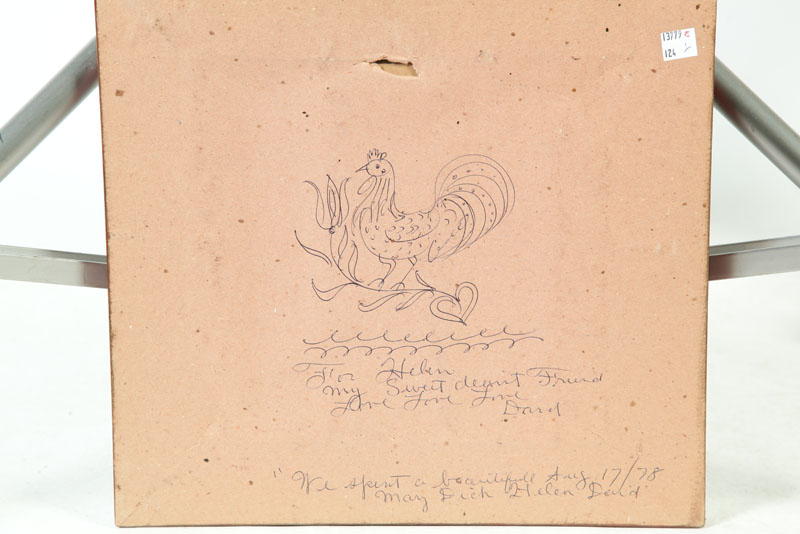 13779 c
126
For Helen
my Sweet dearest Friend
Love Love Love
David
" We spent a beautifull Aug 17/78
May Dick Helen David